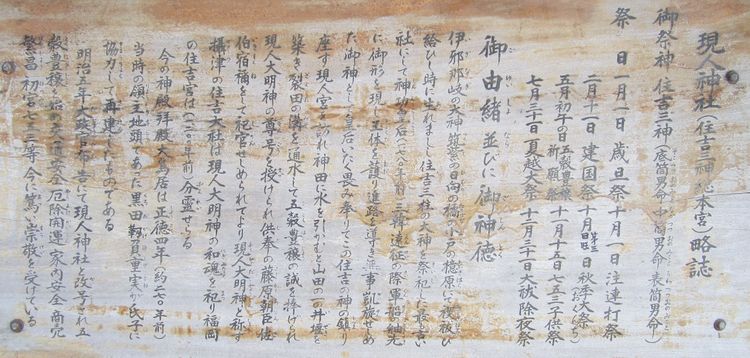 現人神社(住吉三神總本宮)略誌
御祭神 住吉三神(底筒男命 中筒男命 表筒男命)
祭 日 一月一日 歳旦祭 十月一日 注連打祭
二月十一日 建国祭 十月第三日曜日 秋季大祭
五月初午の日 五穀豊穣祈願祭 十一月十五日 七五三子供祭
七月三十一日 夏越大祭 十二月三十一日 大祓除夜祭
御由緒 並びに 御神徳
伊邪那岐の大神 筑紫の日向の橘の小戸の檍原にて禊祓ひ
給ひし時に生れましし住吉三柱の大神を祭祀した最も古い
社にして神功皇后(一七八〇年前)三韓遠征の際軍船の舳先
に御形を現し玉体を護り進路を導き無事凱旋せめ
た御神として皇后いたく畏み奉りてこの住吉の神の鎮り
座す現人宮を訪れ神田に水を引かむと山田の一の井堰を
築き裂田の溝を通水して五穀豊穣の誠を捧げられ
現人大明神の尊号を授けられ供奉の藤原朝臣佐
伯宿禰をして祀官せめられてより現人大明神と称す
摂津の住吉大社は現人大明神の和魂を祀り福岡
の住吉宮は(一二〇〇年前)分霊せらる
今の神殿拝殿大鳥居は正徳四年(約二七〇年前)
当時の領主地頭であった黒田靱負重実が氏子に
協力して再建したものである
明治五年大政官布告にて現人神社と改号され五
穀豊穣の后の交通安全厄除開運家内安全商売
繁昌初宮七五三等今に篤い崇敬を受けている